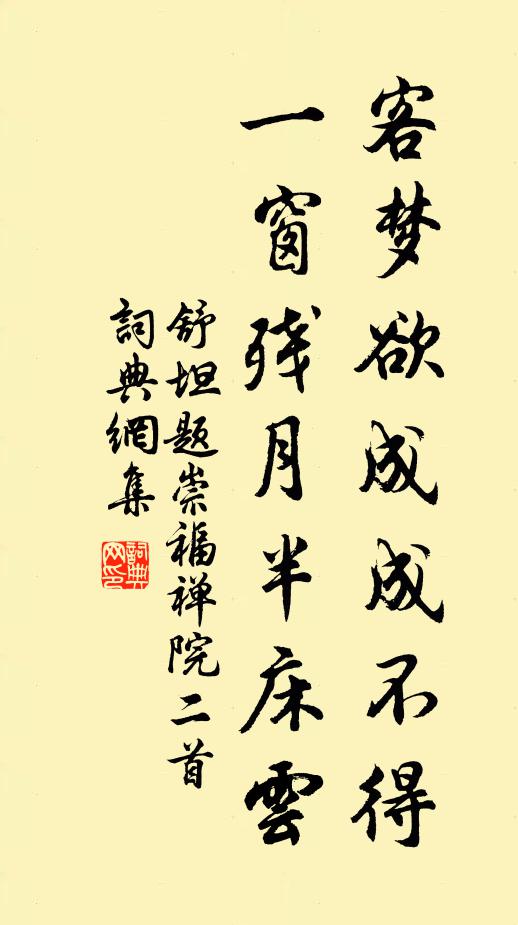 客梦欲成成不得
一窗残月半床雲
舒坦题崇福禅院二首
詞典網集
詞典网印